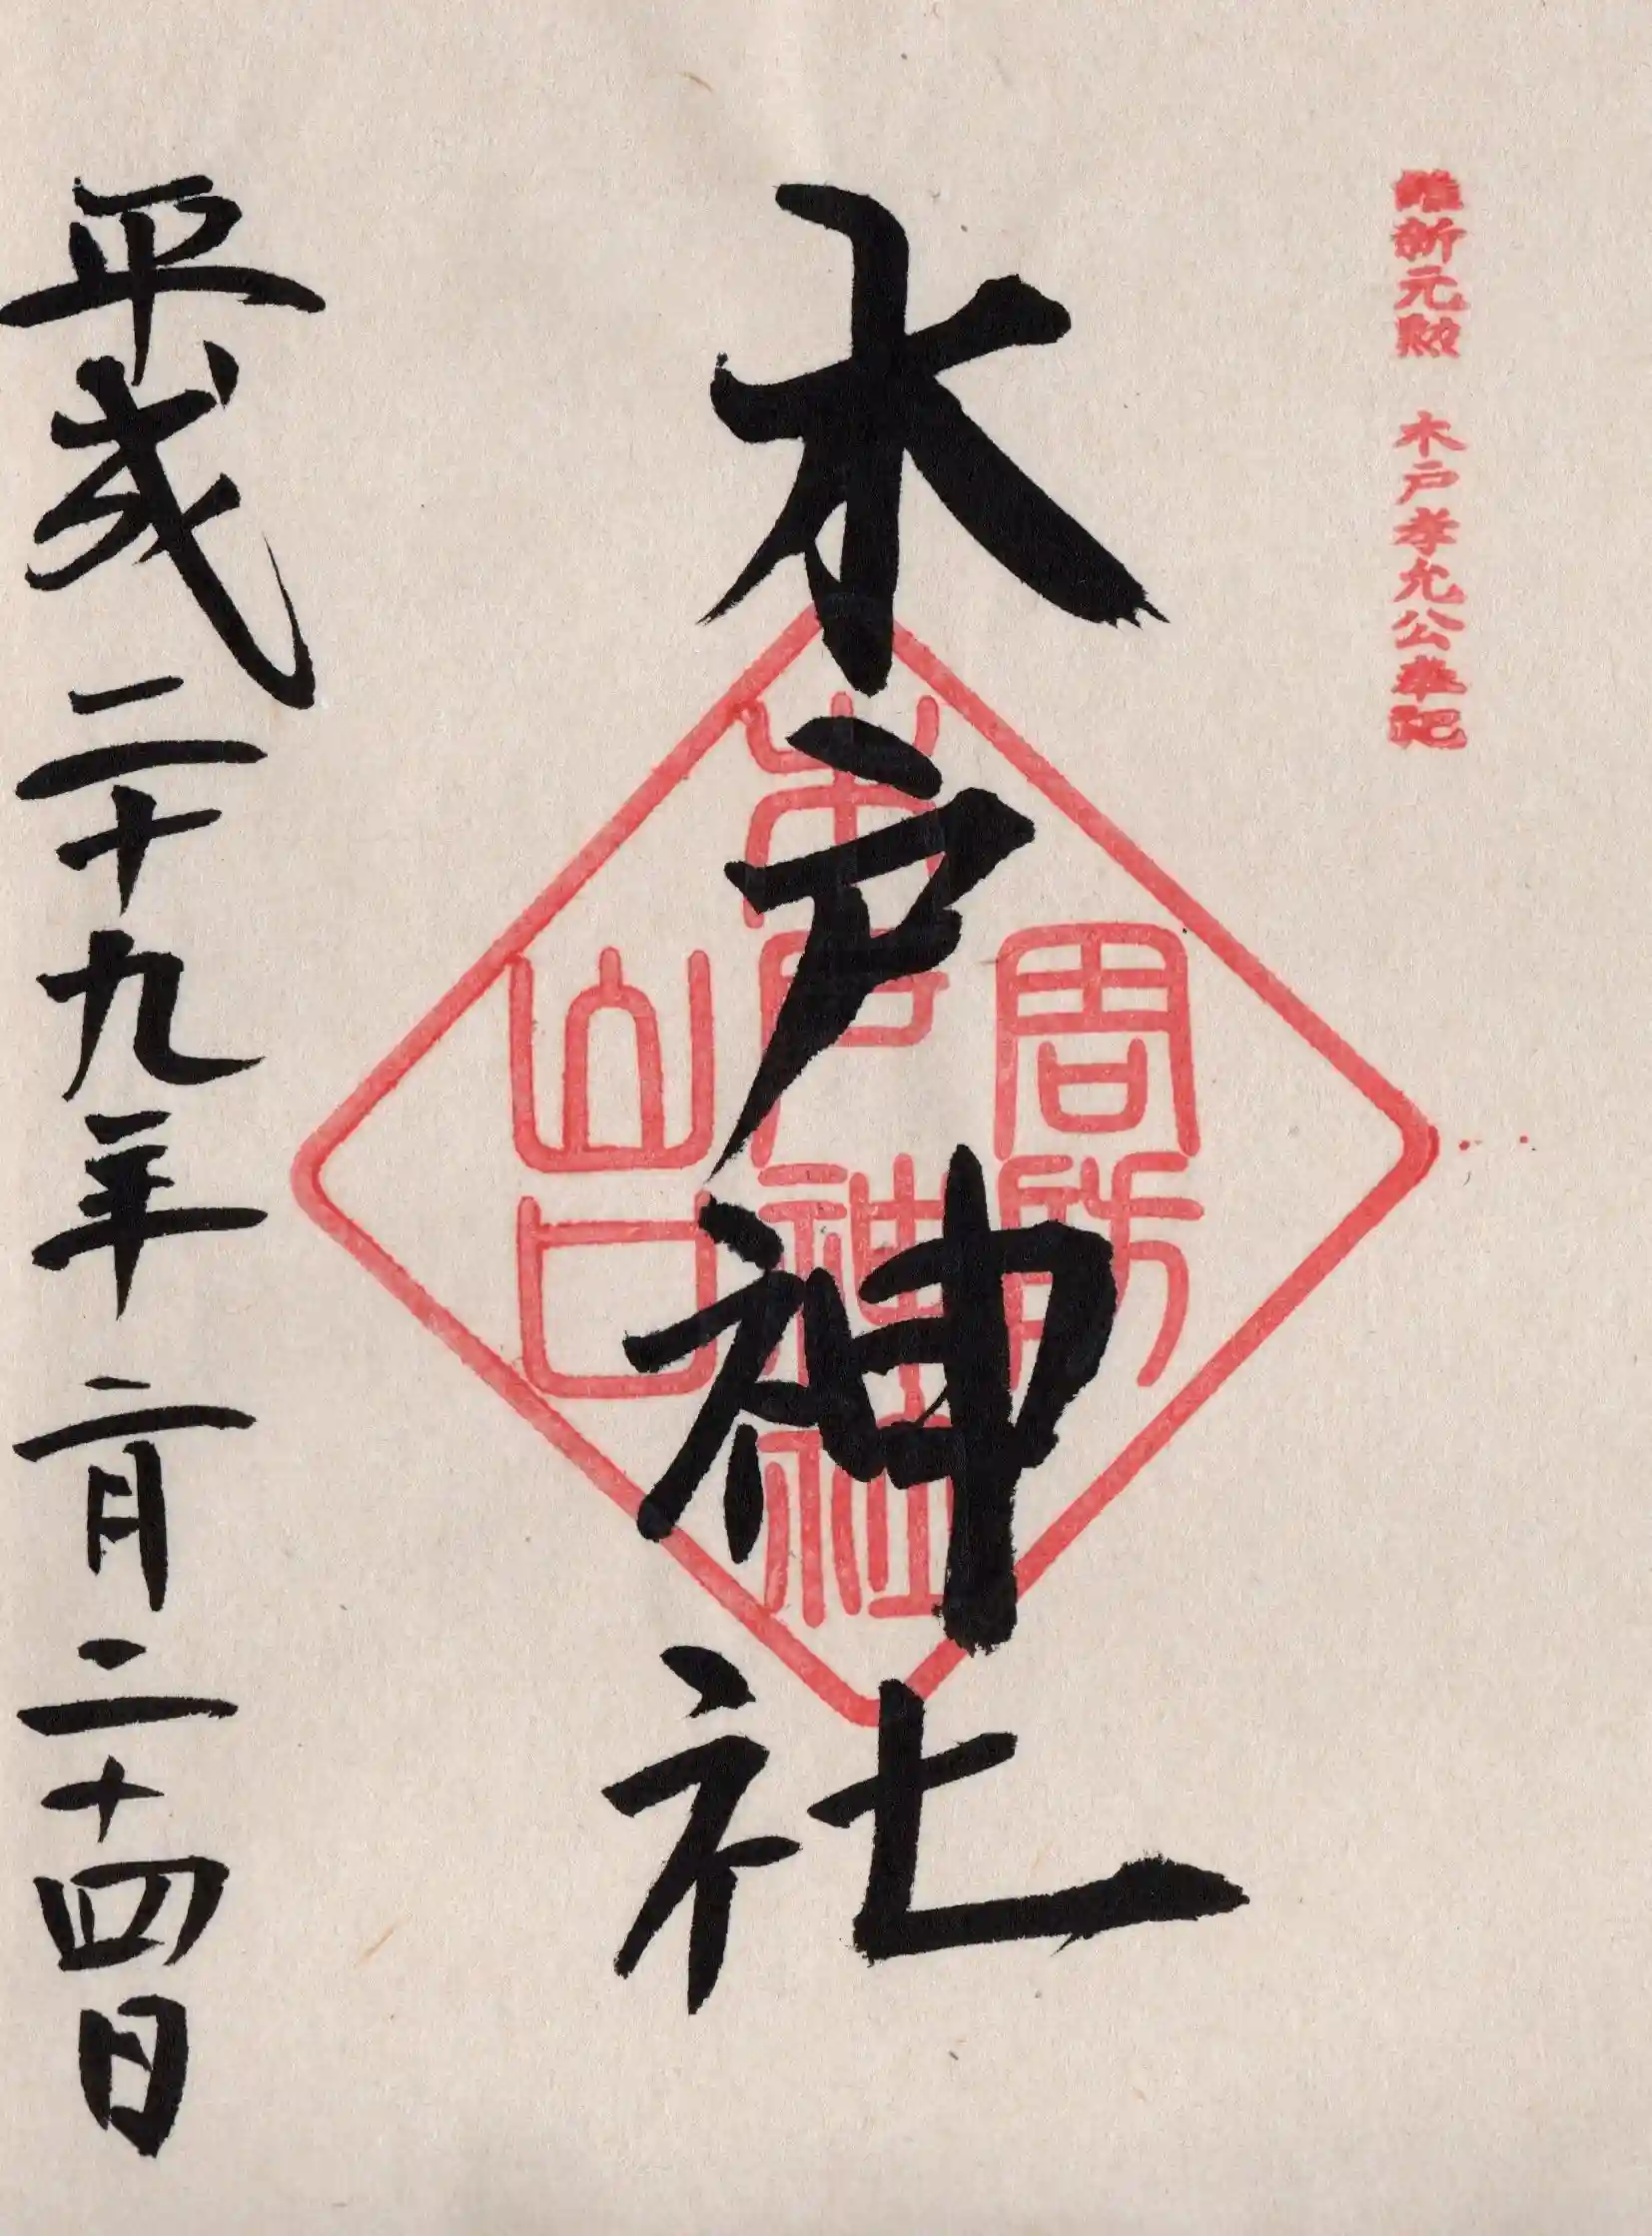 維新元勲 木戸孝允公奉祀
木戸神社
周防
木戸神社
山口
平成二十九年二月二十四日